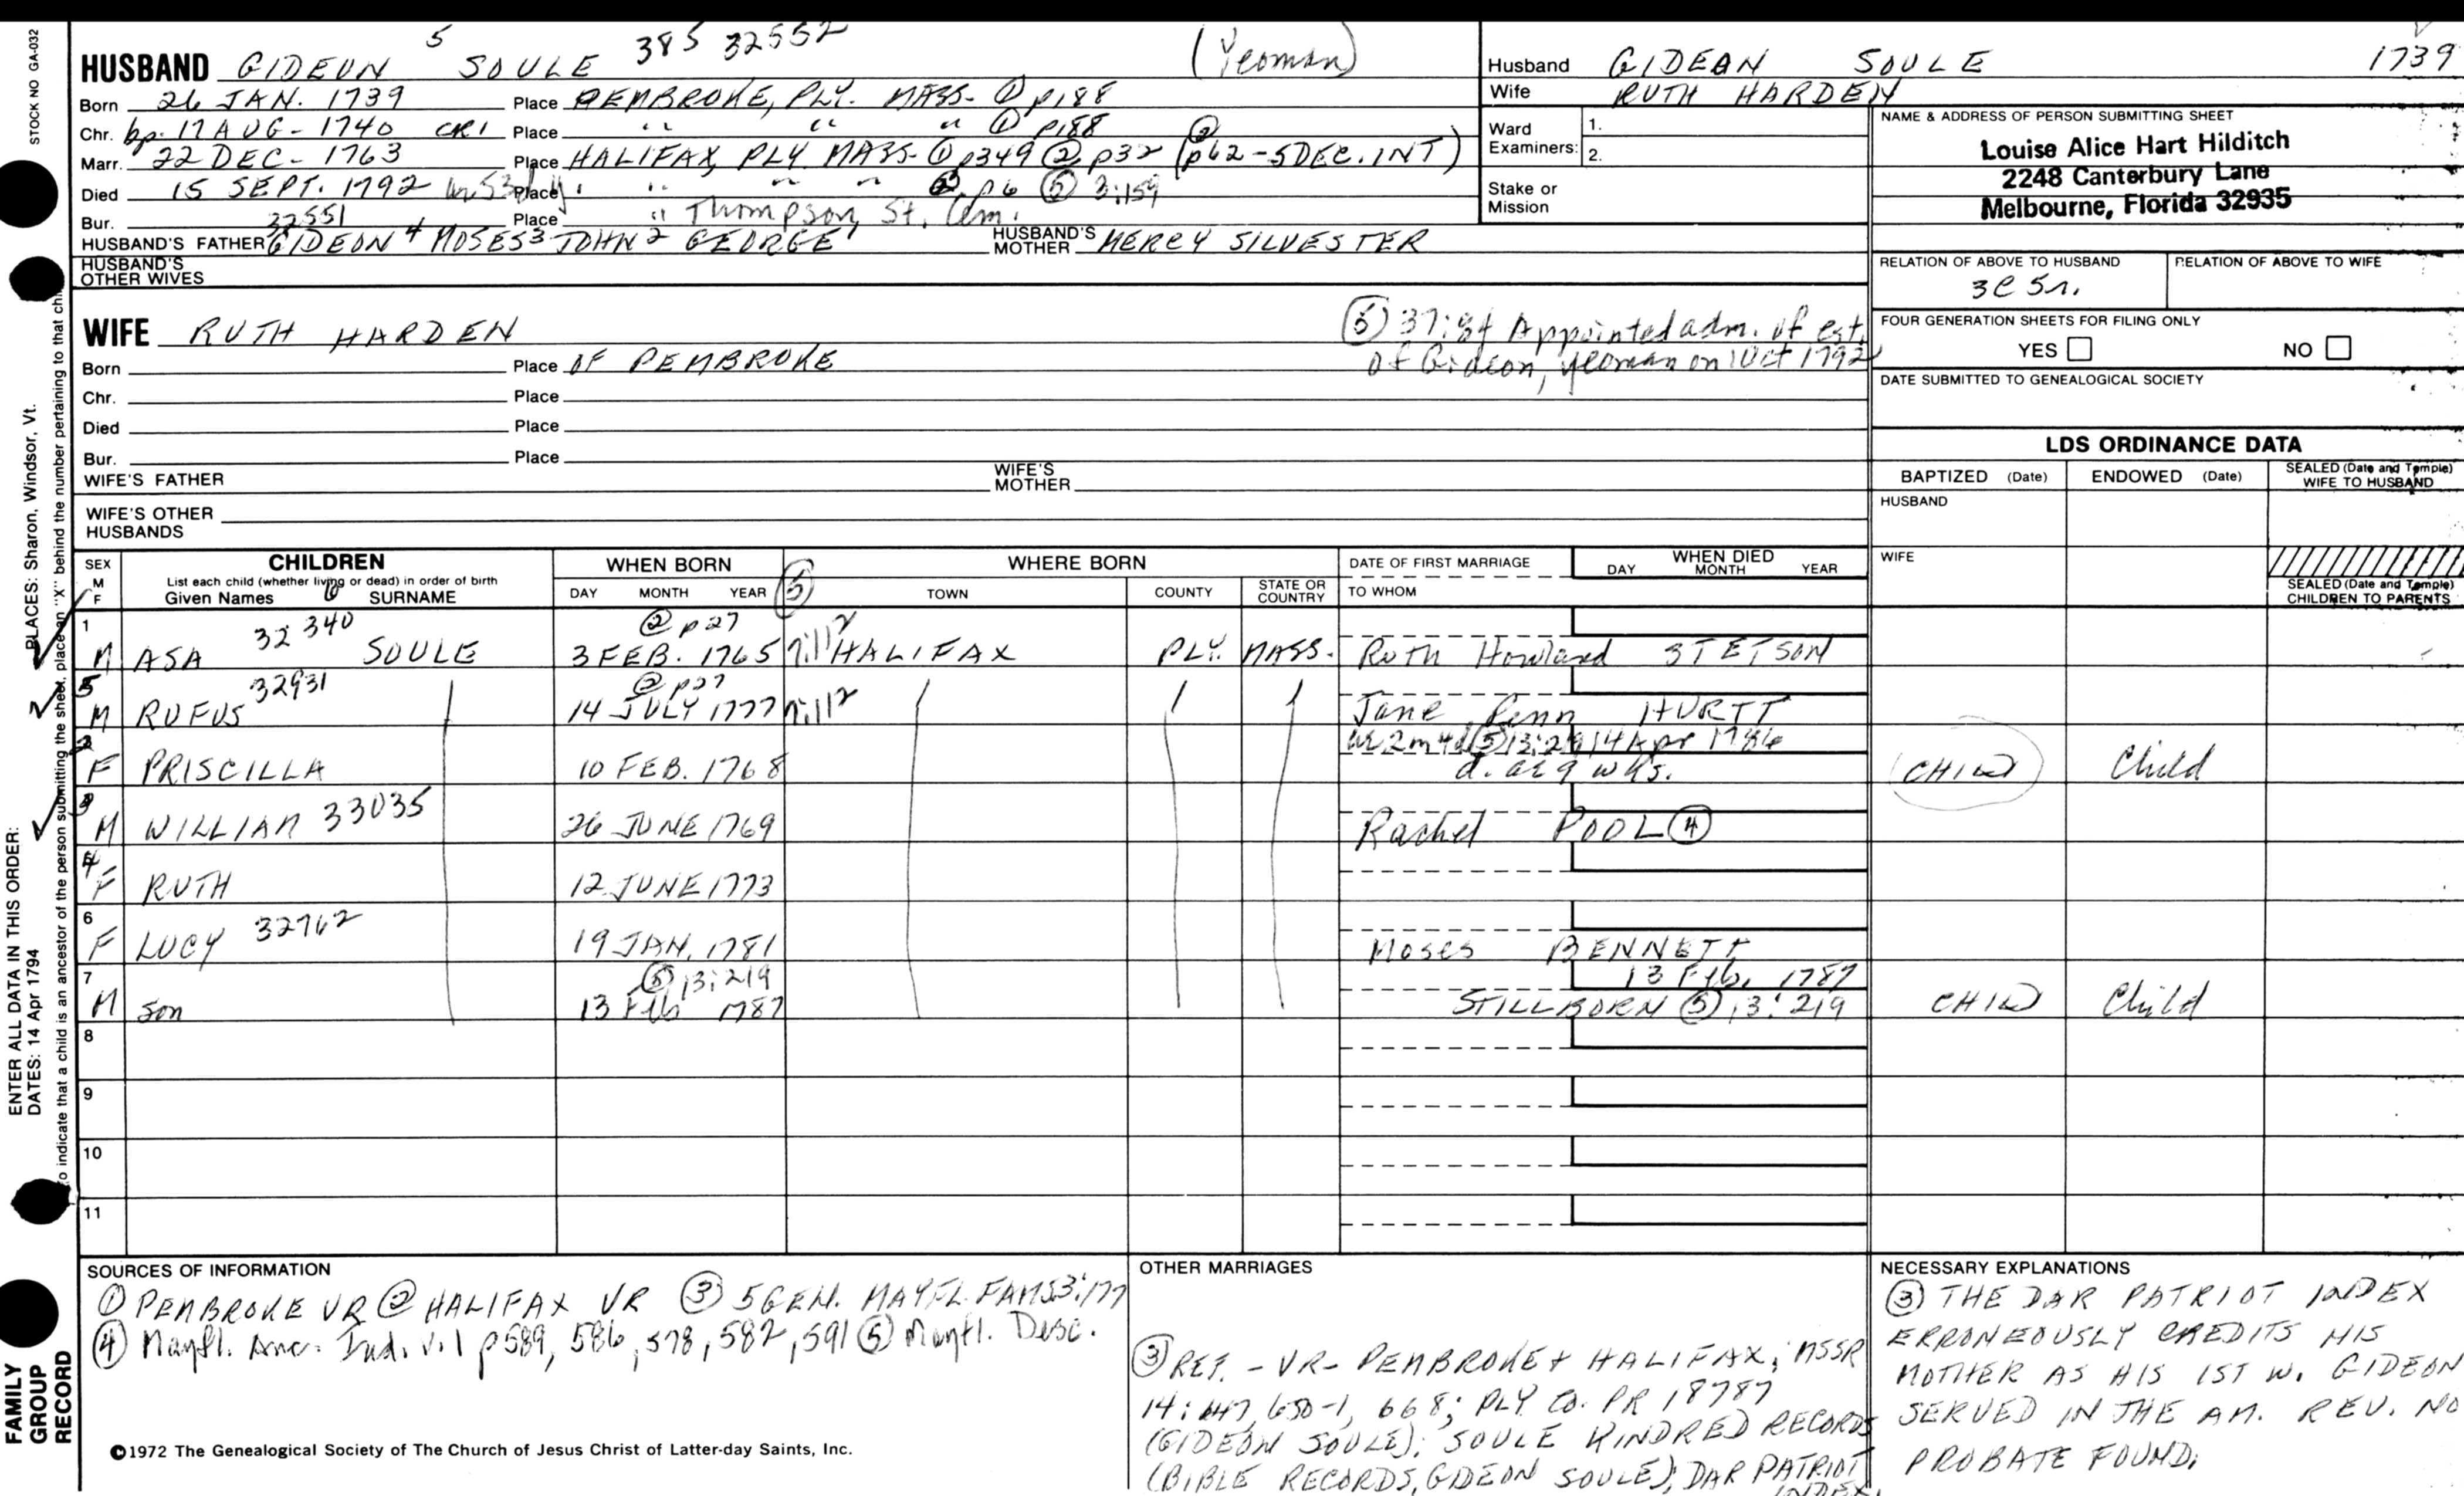 STOCK NO GA-032
HUSBAND GIDEON 5 SOULE 385 32552 (Yeoman)
Born 26 JAN. 1739 Place PEMBROKE, PLY. MASS. ① p188
Chr. bp. 17 AUG - 1740 CR1 Place " " " ① p188
Marr. 22 DEC - 1763 Place HALIFAX, PLY MASS. ① p349 ② p32 (② p62-5DEC. INT)
Died 15 SEPT. 1792 Place " " " " ② p6 ⑤ 3:159
Bur. 32551 Place " Thompson, St. Cem.
HUSBAND'S FATHER GIDEON 4 MOSES 3 JOHN 2 GEORGE 1 HUSBAND'S MOTHER MERCY SILVESTER
HUSBAND'S OTHER WIVES
Husband GIDEAN SOULE 1739
Wife RUTH HARDEN
Ward Examiners: 1. 2.
Stake or Mission
NAME & ADDRESS OF PERSON SUBMITTING SHEET
Louise Alice Hart Hilditch
2248 Canterbury Lane
Melbourne, Florida 32935
RELATION OF ABOVE TO HUSBAND RELATION OF ABOVE TO WIFE
3C 5r.
FOUR GENERATION SHEETS FOR FILING ONLY
YES NO
DATE SUBMITTED TO GENEALOGICAL SOCIETY
WIFE RUTH HARDEN
⑤ 37:84 Appointed adm. of est.
of Gideon, yeoman on 1 Oct 1792
Born Place OF PEMBROKE
Chr. Place
Died Place
Bur. Place
WIFE'S FATHER WIFE'S MOTHER
WIFE'S OTHER HUSBANDS
LDS ORDINANCE DATA
BAPTIZED (Date) ENDOWED (Date) SEALED (Date and Temple) WIFE TO HUSBAND
HUSBAND
WIFE
SEALED (Date and Temple) CHILDREN TO PARENTS
SEX M F CHILDREN List each child (whether living or dead) in order of birth Given Names SURNAME
WHEN BORN DAY MONTH YEAR ⑤
WHERE BORN TOWN COUNTY STATE OR COUNTRY
DATE OF FIRST MARRIAGE TO WHOM
WHEN DIED DAY MONTH YEAR
1 M ASA 32340 SOULE ② p27 3 FEB. 1765 HALIFAX PLY. MASS. Ruth Howland STETSON
5 M RUFUS 32931 ② p27 14 JULY 1777 Jane Penn HURTT
2 F PRISCILLA 10 FEB. 1768 14 Apr d. ae 9 wks. CHILD Child
3 M WILLIAM 33035 26 JUNE 1769 Rachel POOL ④
4 F RUTH 12 JUNE 1773
6 F LUCY 32762 19 JAN. 1781 Moses BENNETT
7 M son ⑤ 13:219 13 Feb 1787 13 Feb. 1787 STILLBORN ⑤ 13:219 CHILD Child
8
9
10
11
SOURCES OF INFORMATION
① PEMBROKE VR ② HALIFAX VR ③ 5 GEN. MAYFL. FAMS 3:177
④ Mayfl. Anc. Ind. v.1 p589, 586, 578, 582, 591 ⑤ Mayfl. Desc.
OTHER MARRIAGES
③ REF. - VR- PEMBROKE + HALIFAX; MSSR
14: 647, 650-1, 668; PLY CO. PR 18787
(GIDEON SOULE); SOULE KINDRED RECORDS
(BIBLE RECORDS, GIDEON SOULE); DAR PATRIOT
INDEX.
NECESSARY EXPLANATIONS
③ THE DAR PATRIOT INDEX
ERRONEOUSLY CREDITS HIS
MOTHER AS HIS 1ST W. GIDEON
SERVED IN THE AM. REV. NO
PROBATE FOUND.
©1972 The Genealogical Society of The Church of Jesus Christ of Latter-day Saints, Inc.
FAMILY GROUP RECORD
ENTER ALL DATA IN THIS ORDER:
DATES: 14 Apr 1794
PLACES: Sharon, Windsor, Vt.
To indicate that a child is an ancestor of the person submitting the sheet, place an "X" behind the number pertaining to that